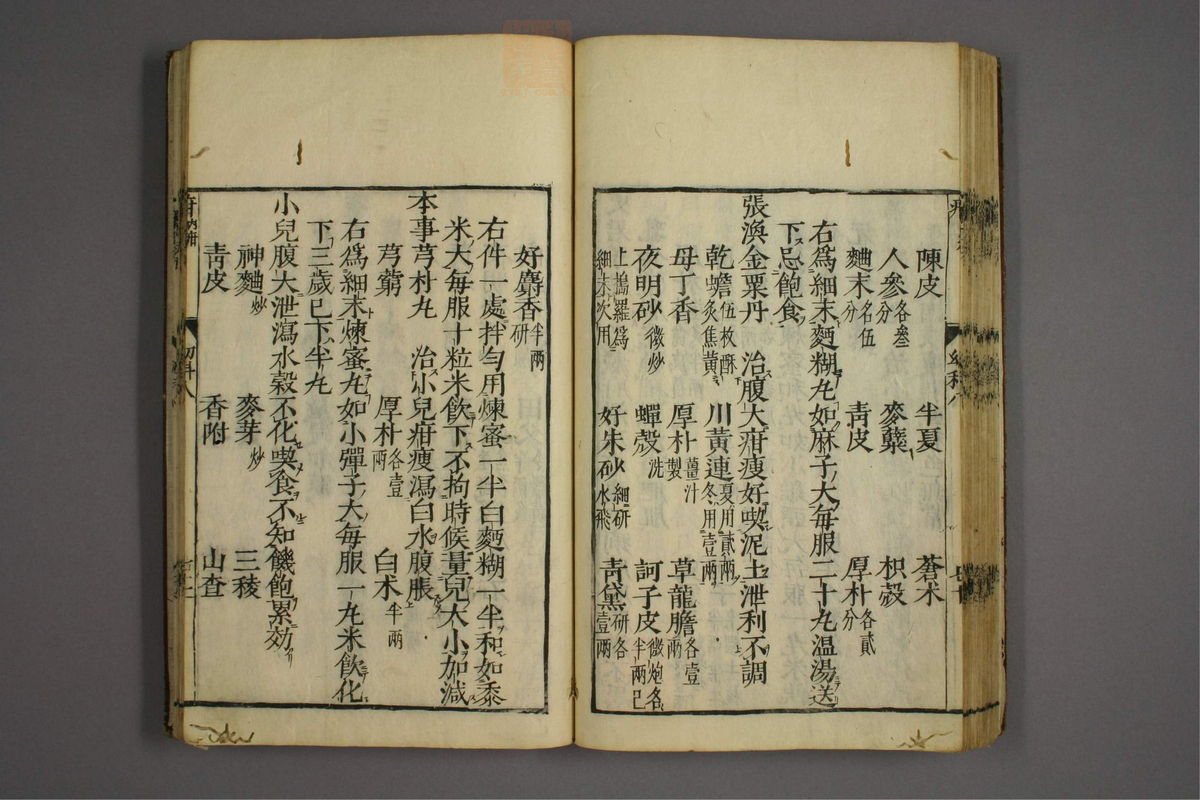 陳皮 半夏 蒼朮
人參各叄分 麥蘗 枳殼
麯末各伍分 青皮 厚朴各貳分
右爲細末麪糊丸如麻子大每服二十丸温湯送
下忌飽食
張渙金粟丹 治腹大疳瘦好喫泥土泄利不調
乾蟾伍枚酥炙焦黄 川黄連夏用貳兩冬用壹兩
母丁香 厚朴薑汁製 草龍膽各壹兩
夜明砂微炒 蟬殼洗 訶子皮微炮各半兩已
上擣羅爲細末次用 好朱砂細研水飛 青黛研各壹兩
好麝香半兩研
右件一處拌勻用煉蜜一半白麪糊一半和如黍
米大每服十粒米飲下不拘時候量兒大小加減
本事芎朴丸 治小兒疳瘦瀉白水腹脹
芎藭 厚朴各壹兩 白朮半兩
右爲細末煉蜜丸如小彈子大每服一丸米飲化
下三歲已下半丸
小兒腹大泄瀉水穀不化喫食不知饑飽累効
神麯炒 麥芽炒 三稜
青皮 香附 山查